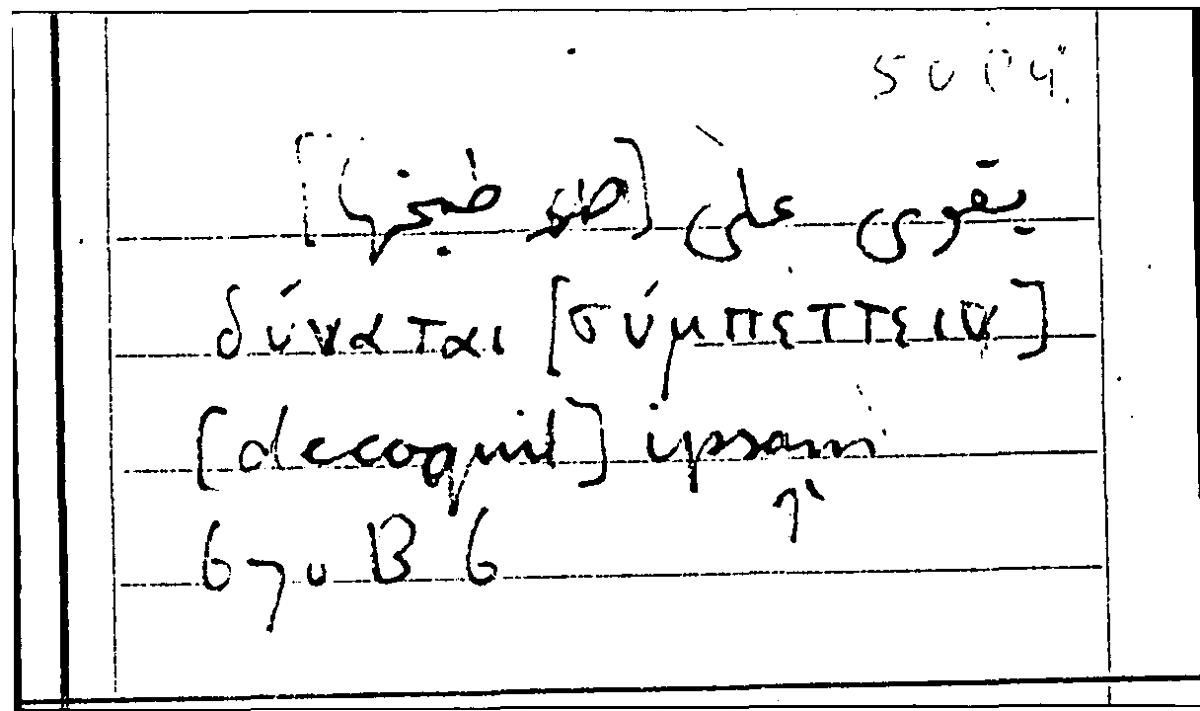 يقوى على [طبخها]
δύναται [σύμπεττειν]
[decoquit] ipsam
670 B 6